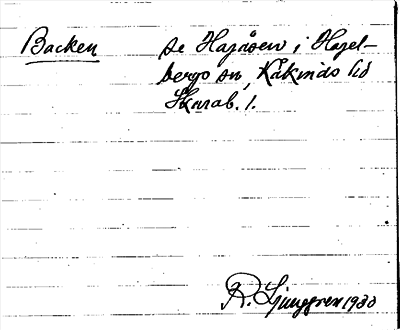 Backen se Hagåsen i Hagel-
bergs sn, Kåkinds hd
Skarab. l.
R. Ljunggren 1930